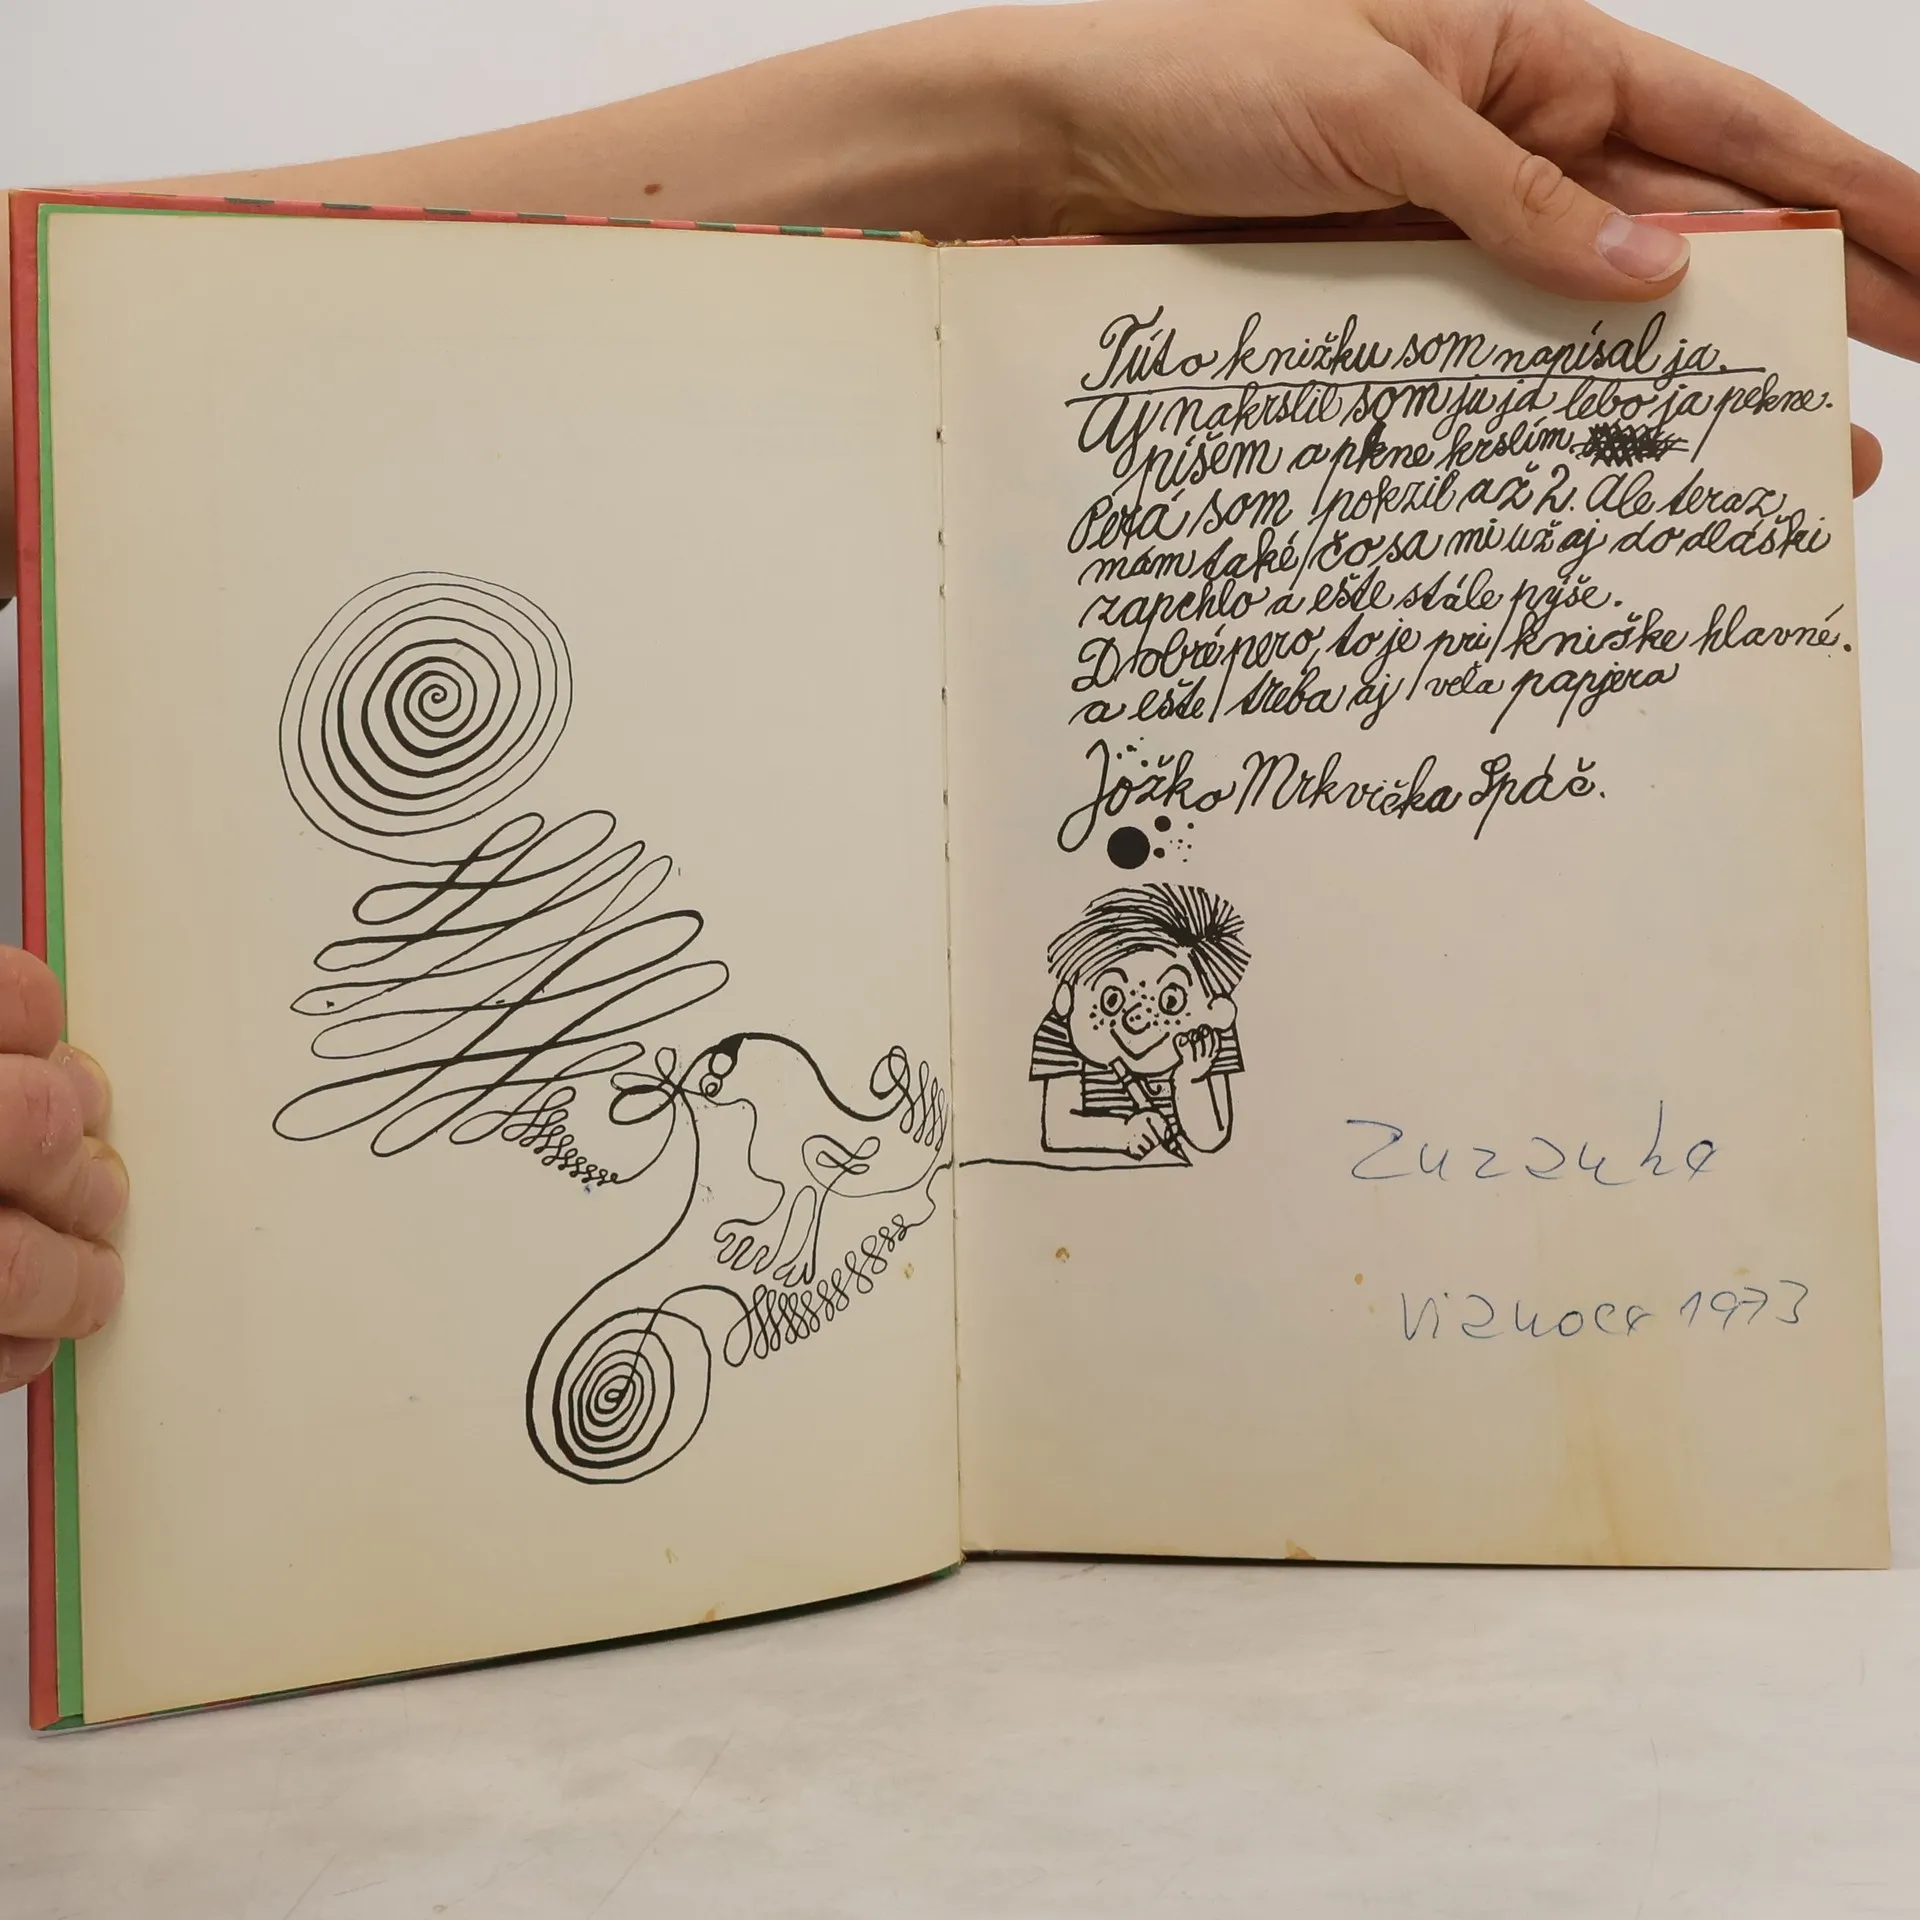 Túto knižku som napísal ja.
Aj nakrslil som ju ja lebo ja pekne.
píšem a pkne krslím.
Perá som pokzil až 2. Ale teraz
mám také čo sa mi už aj do dláški
zapchlo a ešte stále pýše.
Dobré pero, to je pri kniške hlavné.
a ešte treba aj veľa papjera
Jožko Mrkvička Spáč.
Zuzzuka
Vianoce 1973